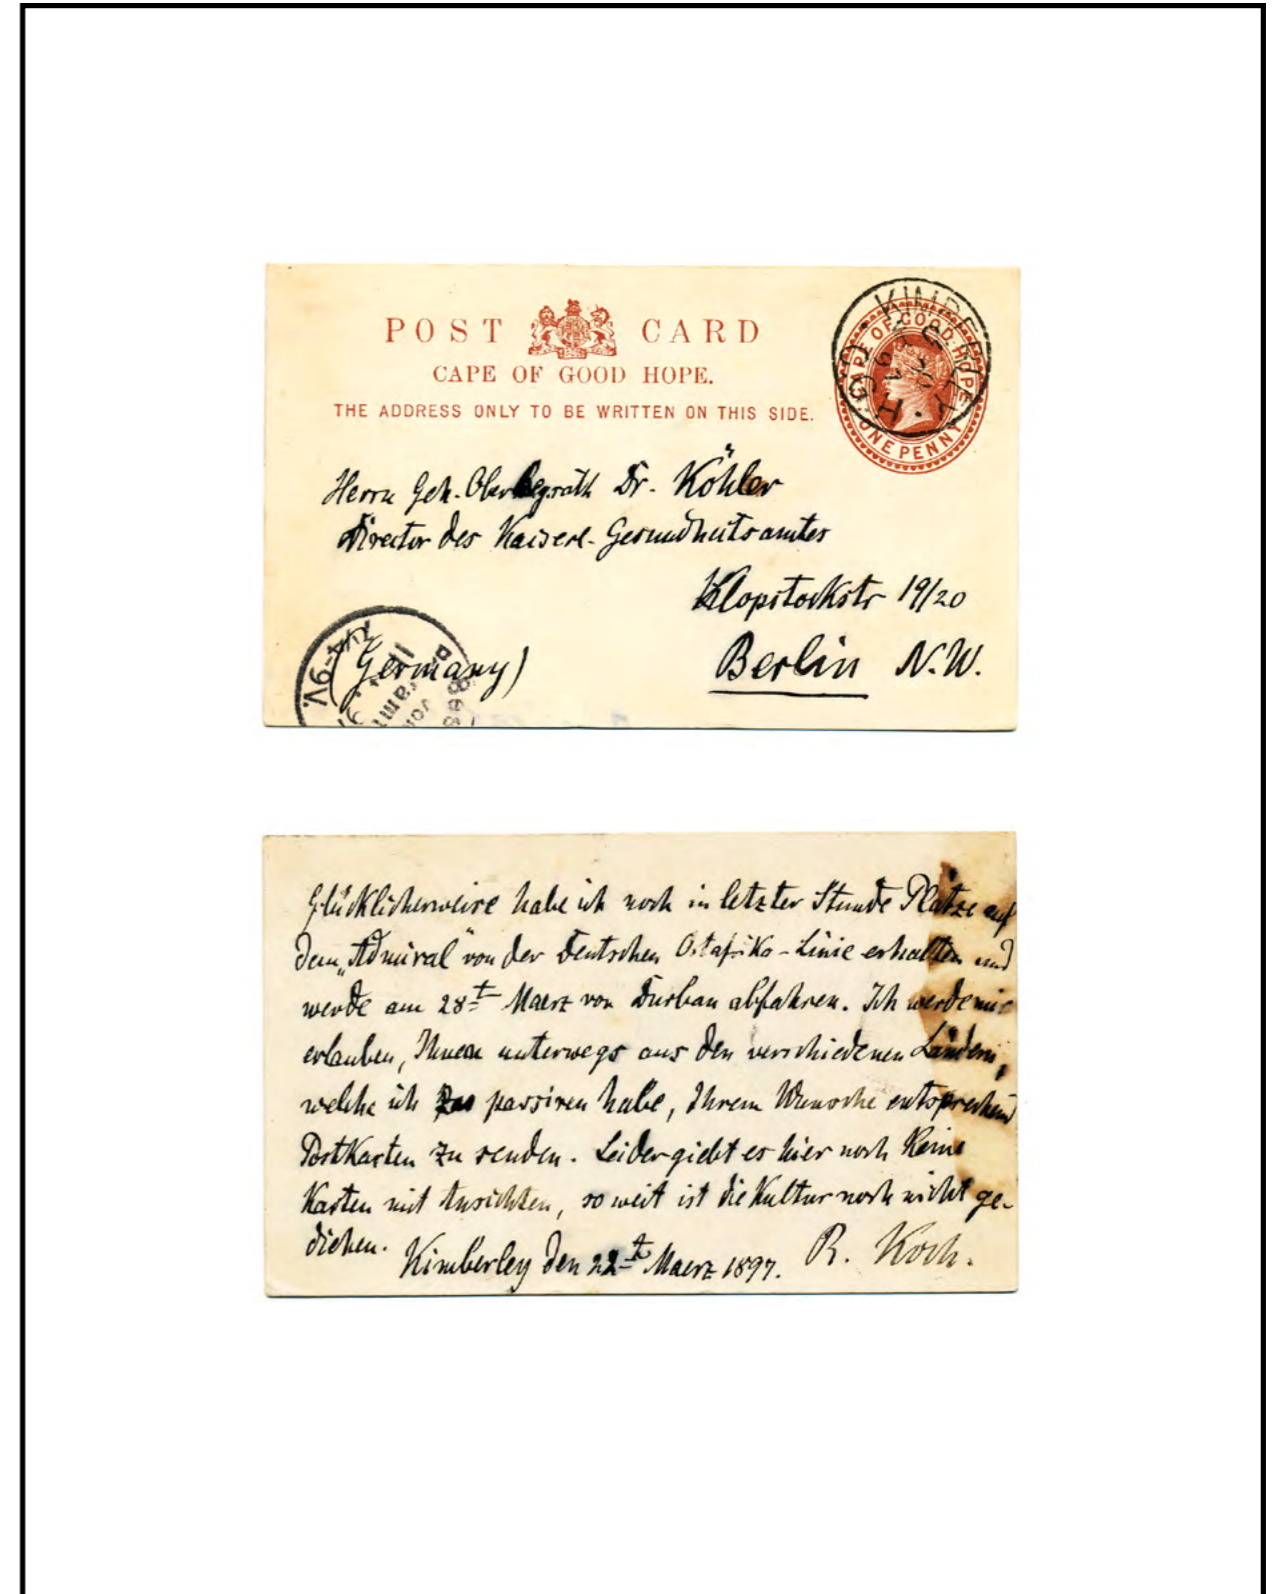 POST CARD
CAPE OF GOOD HOPE.
THE ADDRESS ONLY TO BE WRITTEN ON THIS SIDE.
CAPE OF GOOD HOPE
ONE PENNY
KIMBERLEY
C.G.H
Herrn Geh. Oberregrath Dr. Köhler
Director des Kaiserl. Gesundheitsamtes
Klopstockstr 19/20
(Germany)
Berlin N.W.
7¼-9V.
Glücklicherweise habe ich noch in letzter Stunde Plätze auf
dem „Admiral" von der Deutschen Ostafrika-Linie erhalten und
werde am 28t Maerz von Durban abfahren. Ich werde mir
erlauben, Ihnen unterwegs aus den verschiedenen Ländern,
welche ich zu passiren habe, Ihrem Wunsche entsprechend
Postkarten zu senden. Leider giebt es hier noch keine
Karten mit Ansichten, so weit ist die Kultur noch nicht ge-
diehen.
Kimberley den 22t Maerz 1897. R. Koch.